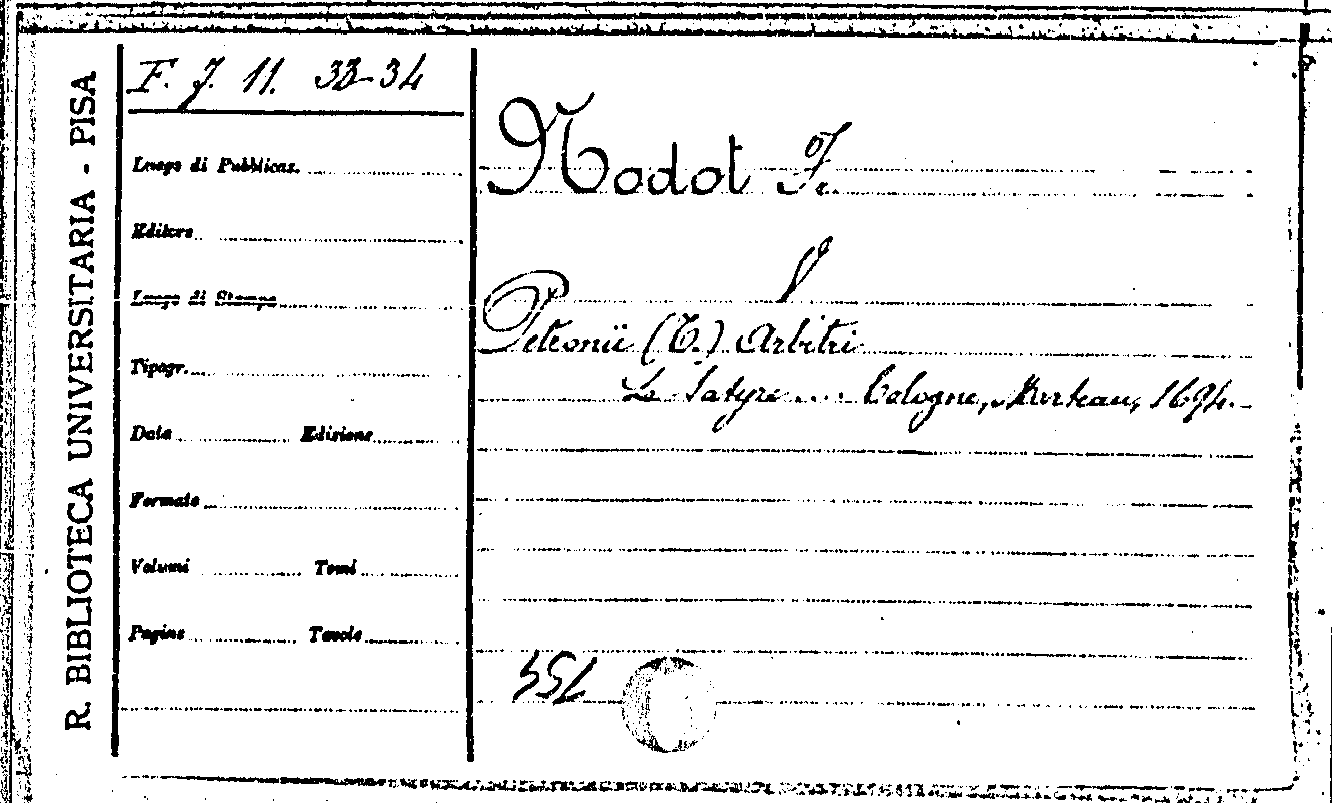 R. BIBLIOTECA UNIVERSITARIA - PISA
F. J. 11. 33-34
Luogo di Pubblicaz.
Editore
Luogo di Stampa
Tipogr.
Data Edizione
Formato
Volumi Tomi
Pagine Tavole
Nodot F.
Petronii (T.) Arbitri
La Satyre .... Cologne, Marteau, 1694.